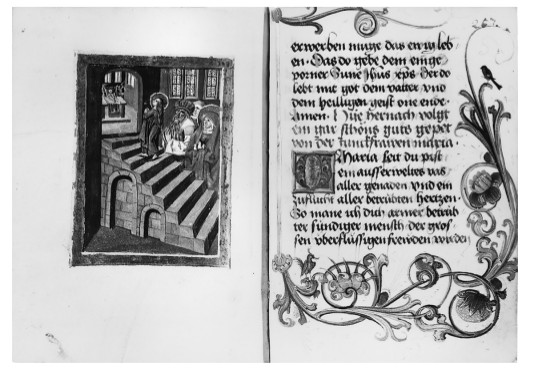 erwerben muge das ewig leb
en · Das do gebe dem einge
porner Sune Jhus xps Der do
lebt mit got dem vatter vnd
dem heiligen geist one ende ·
Amen · Hye hernach volgt
ein gar schons guts gepet
von der junckfrawen maria
O Maria seit du pist
ein ausserweltes vas
aller genaden vnd ein
zuflucht aller betrubten hertzen ·
So mane ich dich armer betrub
ter sundiger mensch der gros
sen vberflussigen frewden